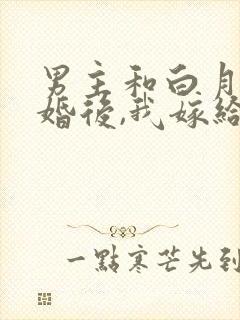 男主和白月
婚後,我嫁給
一點寒芒先到